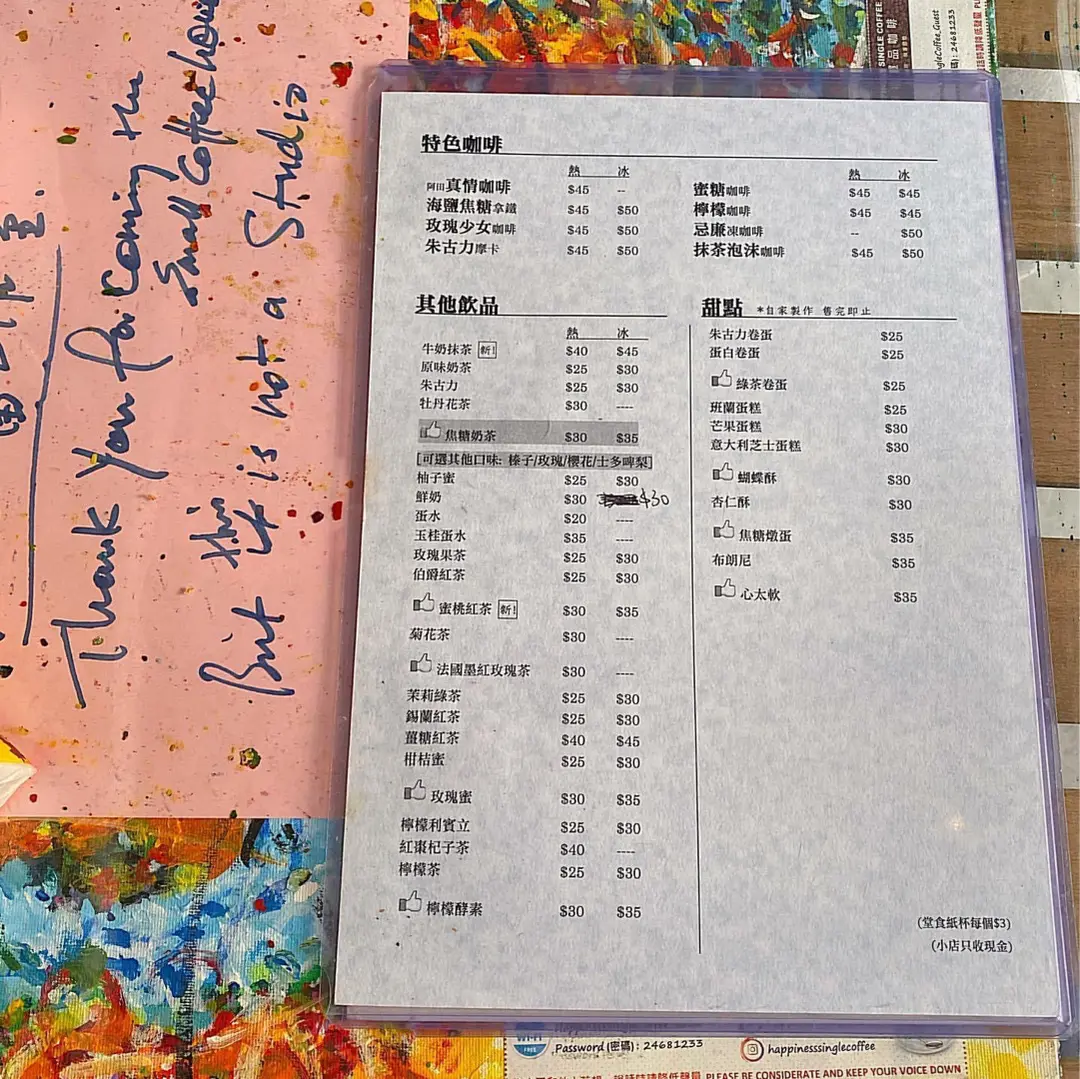 Thank you for coming the
Small Coffee house
But this is not a Studio
SINGLE COFFEE
單品咖啡
ngleCoffee_Guest
碼) : 24681233
特色咖啡
熱 冰
阿田真情咖啡 $45 --
海鹽焦糖拿鐵 $45 $50
玫瑰少女咖啡 $45 $50
朱古力摩卡 $45 $50
熱 冰
蜜糖咖啡 $45 $45
檸檬咖啡 $45 $45
忌廉凍咖啡 -- $50
抹茶泡沫咖啡 $45 $50
其他飲品
熱 冰
牛奶抹茶 新! $40 $45
原味奶茶 $25 $30
朱古力 $25 $30
牡丹花茶 $30 ----
焦糖奶茶 $30 $35
[可選其他口味: 榛子/玫瑰/櫻花/士多啤梨]
柚子蜜 $25 $30
鮮奶 $30 $30
蛋水 $20 ----
玉桂蛋水 $35 ----
玫瑰果茶 $25 $30
伯爵紅茶 $25 $30
蜜桃紅茶 新! $30 $35
菊花茶 $30 ----
法國墨紅玫瑰茶 $30 ----
茉莉綠茶 $25 $30
錫蘭紅茶 $25 $30
薑糖紅茶 $40 $45
柑桔蜜 $25 $30
玫瑰蜜 $30 $35
檸檬利賓立 $25 $30
紅棗杞子茶 $40 ----
檸檬茶 $25 $30
檸檬酵素 $30 $35
甜點 *自家製作 售完即止
朱古力卷蛋 $25
蛋白卷蛋 $25
綠茶卷蛋 $25
班蘭蛋糕 $25
芒果蛋糕 $30
意大利芝士蛋糕 $30
蝴蝶酥 $30
杏仁酥 $30
焦糖燉蛋 $35
布朗尼 $35
心太軟 $35
(堂食紙杯每個$3)
(小店只收現金)
WI-FI
FREE
Password (密碼) : 24681233
happinesssinglecoffee
PLEASE BE CONSIDERATE AND KEEP YOUR VOICE DOWN